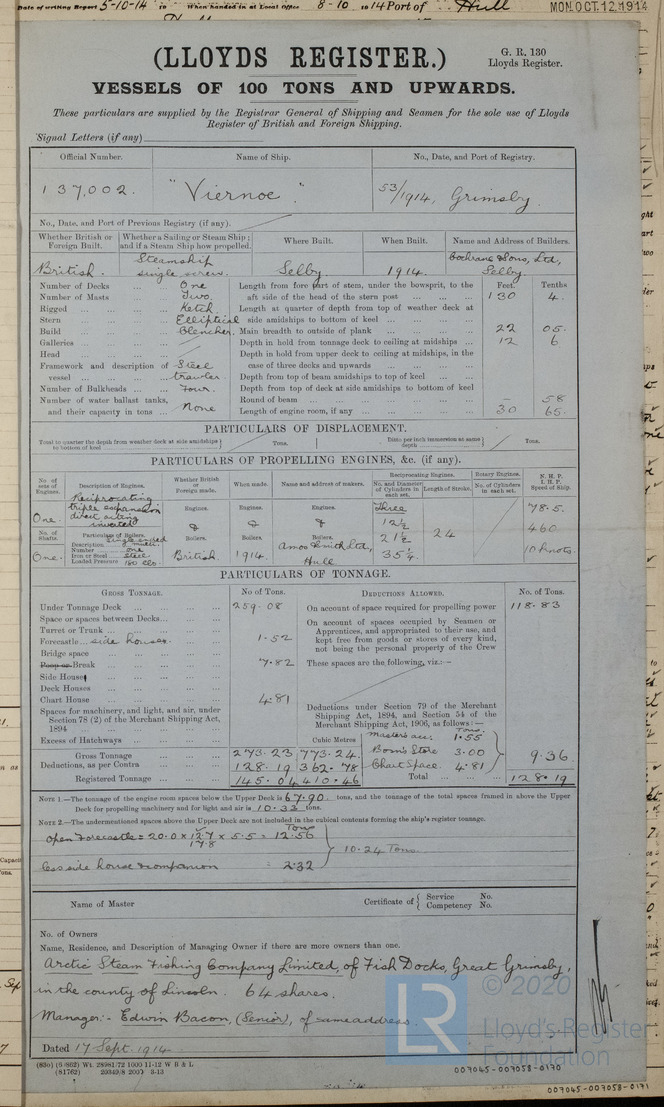 Date of writing Report 5-10-14 19 When handed in at Local Office 8-10 1914 Port of Hull
MON.OCT.12.1914
(LLOYDS REGISTER.)
G. R. 130
Lloyds Register.
VESSELS OF 100 TONS AND UPWARDS.
These particulars are supplied by the Registrar General of Shipping and Seamen for the sole use of Lloyds
Register of British and Foreign Shipping.
Signal Letters (if any)
Official Number. Name of Ship. No., Date, and Port of Registry.
137,002. "Viernoe." 53/1914, Grimsby.
No., Date, and Port of Previous Registry (if any).
Whether British or Foreign Built. Whether a Sailing or Steam Ship; and if a Steam Ship how propelled. Where Built. When Built. Name and Address of Builders.
British. Steamship single screw. Selby. 1914. Cochrane & Sons, Ltd, Selby.
Number of Decks ... ... One Length from fore part of stem, under the bowsprit, to the Feet. Tenths
Number of Masts Two. aft side of the head of the stern post ... ... ... 130 4.
Rigged ... ... ... Ketch. Length at quarter of depth from top of weather deck at
Stern ... ... ... Elliptical side amidships to bottom of keel ... ... ...
Build Clencher. Main breadth to outside of plank ... ... ... 22 05.
Galleries ... ... ... Depth in hold from tonnage deck to ceiling at midships ... 12 6
Head ... ... ... Depth in hold from upper deck to ceiling at midships, in the
Framework and description of Steel case of three decks and upwards ... ... ...
vessel ... ... ... trawler Depth from top of beam amidships to top of keel ... ...
Number of Bulkheads ... ... Four. Depth from top of deck at side amidships to bottom of keel
Number of water ballast tanks, Round of beam ... ... ... - 58
and their capacity in tons ... None Length of engine room, if any ... ... ... 30 65.
PARTICULARS OF DISPLACEMENT.
Total to quarter the depth from weather deck at side amidships to bottom of keel Tons. Ditto per inch immersion at same depth Tons.
PARTICULARS OF PROPELLING ENGINES, &c. (if any).
No. of sets of Engines. Description of Engines. Whether British or Foreign made. When made. Name and address of makers. Reciprocating Engines. Rotary Engines. N. H. P. I. H. P. Speed of Ship.
No. and Diameter of Cylinders in each set. Length of Stroke. No. of Cylinders in each set.
One. Reciprocating triple expansion direct acting inverted Engines. & Engines. & Engines. & Three 12½ 78.5.
No. of Shafts. Particulars of Boilers. Boilers. Boilers. Boilers. 21½ 24 460
One. Description Single ended Number one Iron or Steel steel Loaded Pressure 180 lbs. British. 1914. Amos & Smith Ltd, Hull 35¼ 10 knots.
PARTICULARS OF TONNAGE.
GROSS TONNAGE. No of Tons. DEDUCTIONS ALLOWED. No. of Tons.
Under Tonnage Deck ... ... ... 259.08 On account of space required for propelling power 118.83
Space or spaces between Decks... ... ... On account of spaces occupied by Seamen or
Turret or Trunk ... ... ... Apprentices, and appropriated to their use, and
Forecastle... side houses. 1.52 kept free from goods or stores of every kind,
Bridge space not being the personal property of the Crew
Poop or Break ... ... ... 7.82 These spaces are the following, viz:—
Side House
Deck Houses
Chart House ... ... ... 4.81
Spaces for machinery, and light, and air, under Deductions under Section 79 of the Merchant
Section 78 (2) of the Merchant Shipping Act, Shipping Act, 1894, and Section 54 of the
1894 ... ... ... Merchant Shipping Act, 1906, as follows:—
Excess of Hatchways Cubic Metres Master's acc: Tons. 1.55
Gross Tonnage 273.23 773.24. Bosn's Store 3.00 9.36.
Deductions, as per Contra ... 128.19 362.78 Chart Space. 4.81
Registered Tonnage ... 145.04 410.46 Total ... ... 128.19
NOTE 1.—The tonnage of the engine room spaces below the Upper Deck is 67.90 tons, and the tonnage of the total spaces framed in above the Upper
Deck for propelling machinery and for light and air is 10.33 tons.
NOTE 2.—The undermentioned spaces above the Upper Deck are not included in the cubical contents forming the ship's register tonnage.
Open Forecastle = 20.0 x 12.7 x 5.5 = 12.56 Tons
17.8
10.24 Tons.
less side house & companion = 2.32
Name of Master Certificate of { Service No.
Competency No.
No. of Owners
Name, Residence, and Description of Managing Owner if there are more owners than one.
Arctic Steam Fishing Company Limited, of Fish Docks, Great Grimsby,
in the county of Lincoln. 64 shares.
Manager:- Edwin Bacon, (Senior), of same address.
Dated 17 Sept. 1914.
(850) (5/862) Wt. 28981/72 1000 11-12 W B & L
(81762) 20349/8 2000 3-13
LR
© 2020
Lloyd's Register
Foundation
007045-007058-0170
007045-007058-0171